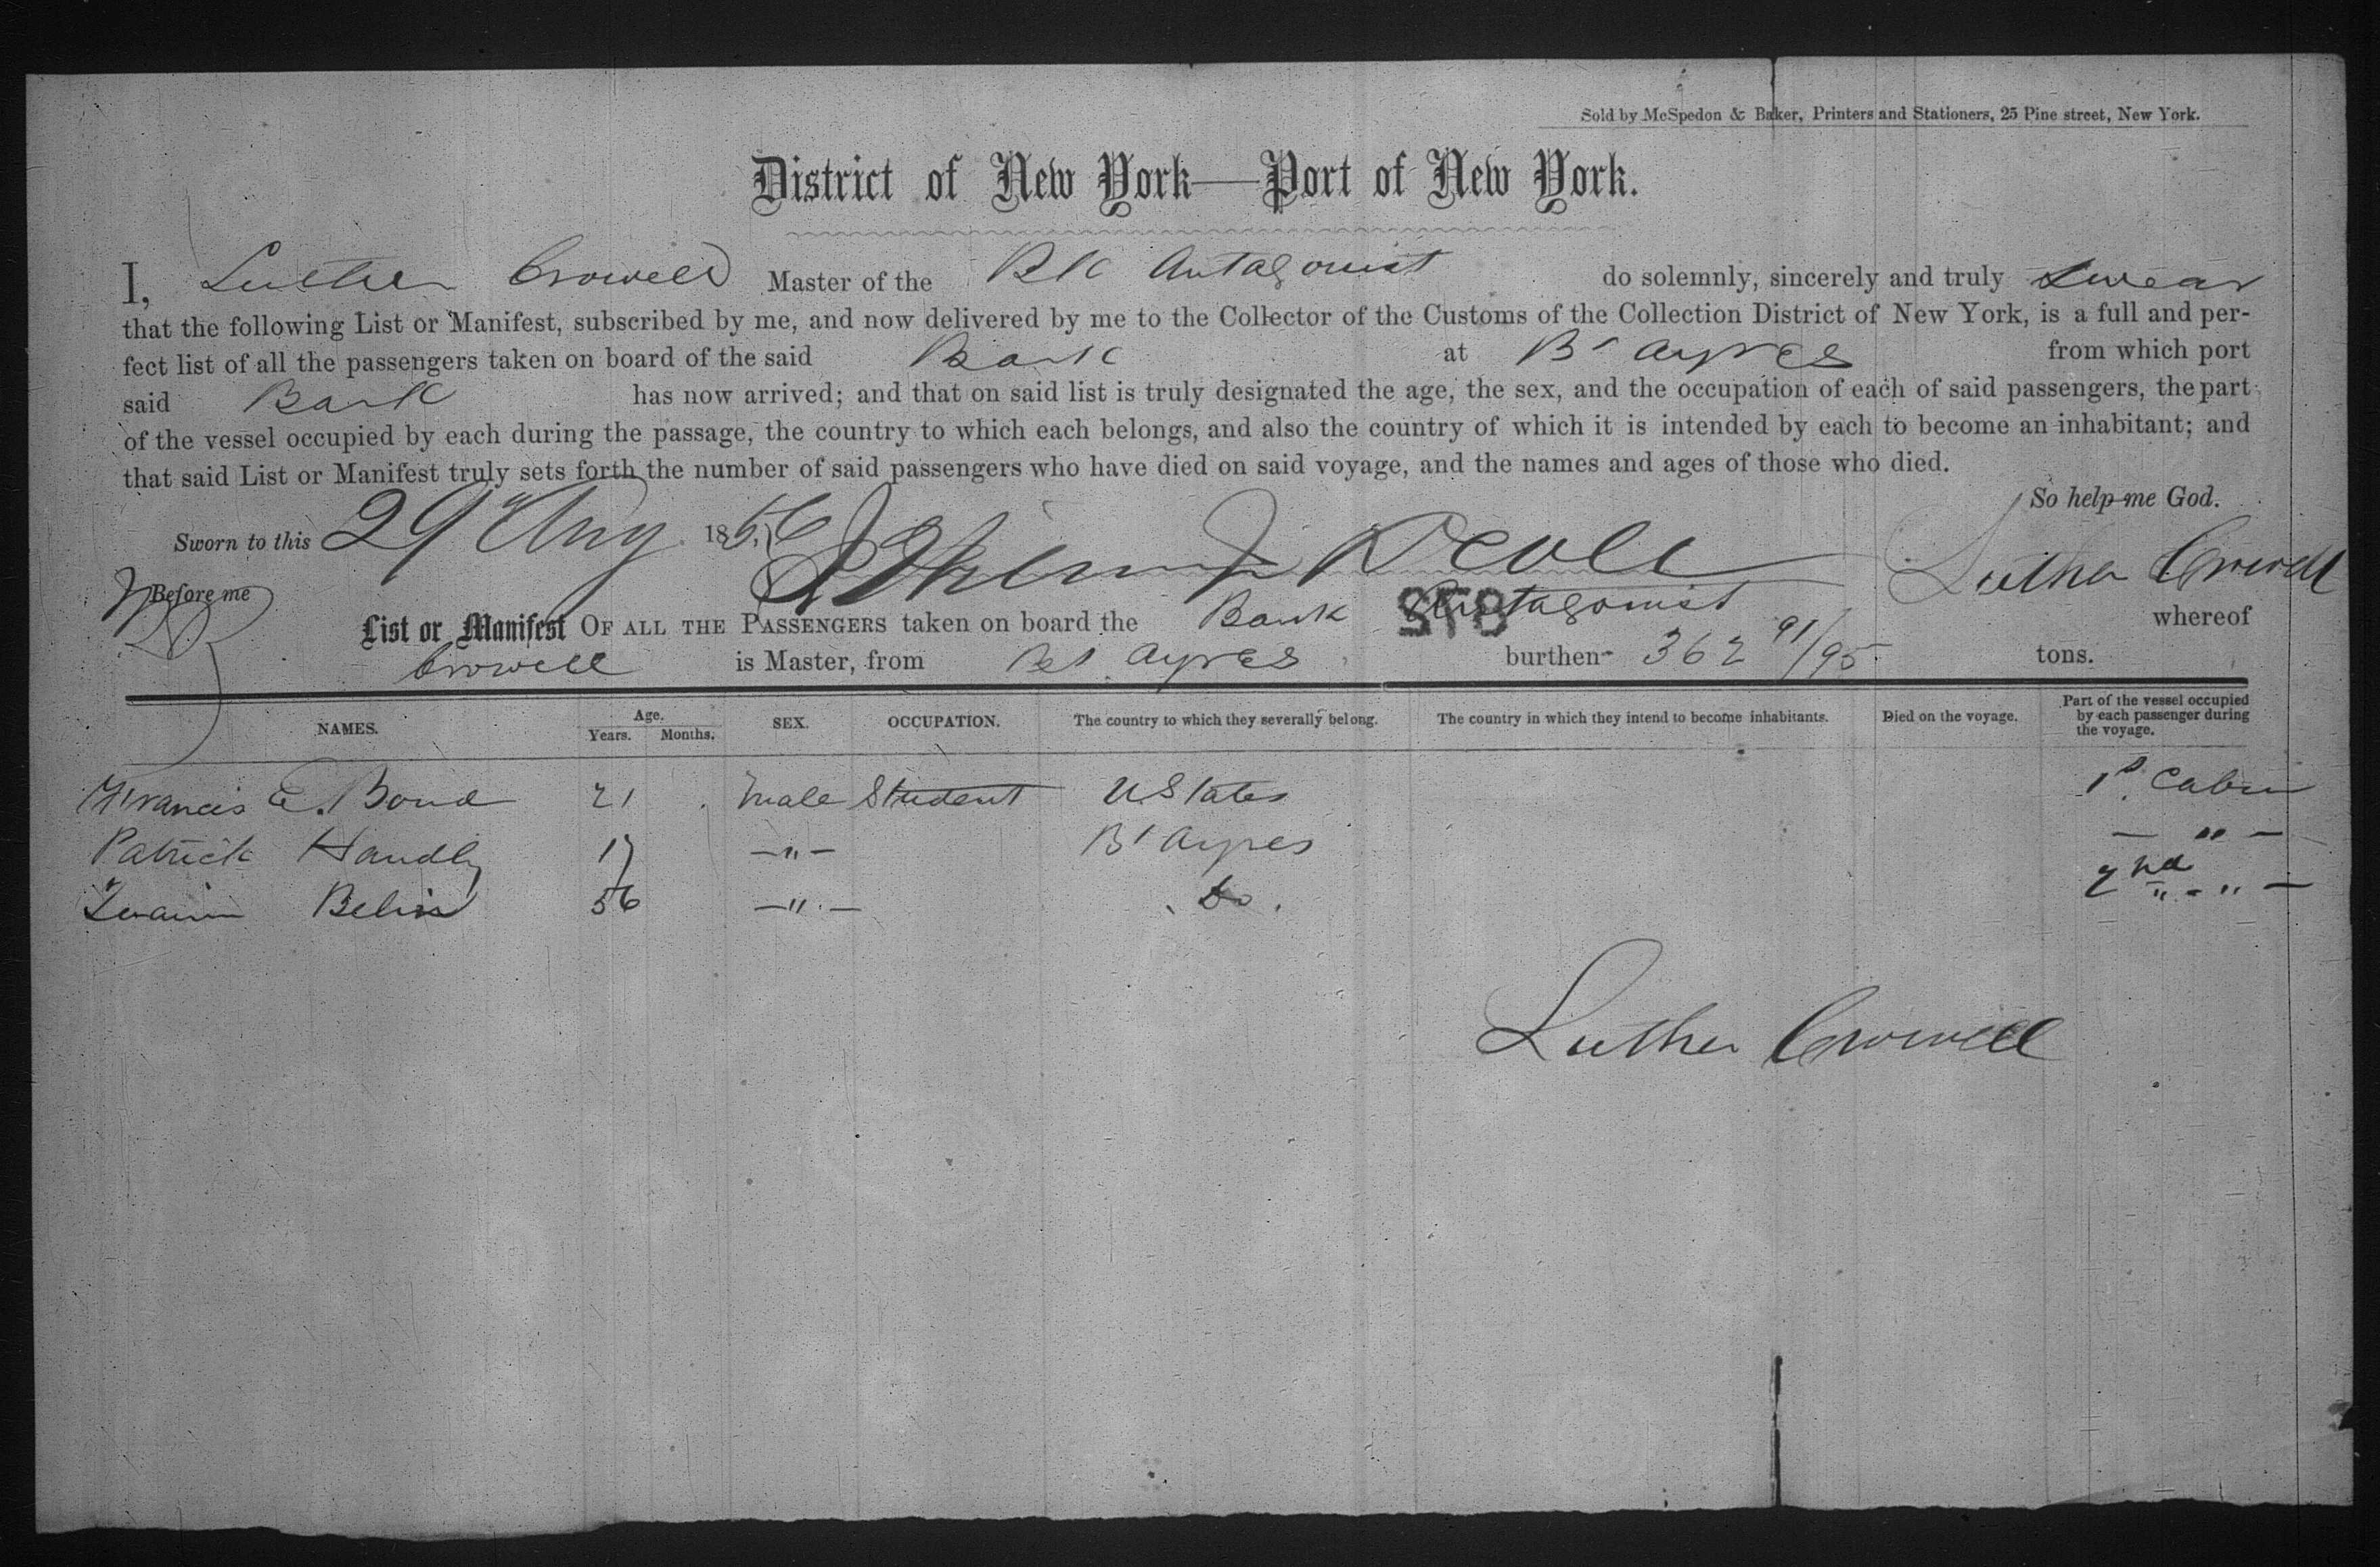 Sold by McSpedon & Baker, Printers and Stationers, 25 Pine street, New York.
District of New York—Port of New York.
I, Luther Crowell Master of the Bk Antagonist do solemnly, sincerely and truly Swear
that the following List or Manifest, subscribed by me, and now delivered by me to the Collector of the Customs of the Collection District of New York, is a full and per-
fect list of all the passengers taken on board of the said Bark at Bs Ayres from which port
said Bark has now arrived; and that on said list is truly designated the age, the sex, and the occupation of each of said passengers, the part
of the vessel occupied by each during the passage, the country to which each belongs, and also the country of which it is intended by each to become an inhabitant; and
that said List or Manifest truly sets forth the number of said passengers who have died on said voyage, and the names and ages of those who died.
So help me God.
Sworn to this 29 Aug 1856 Luther Crowell
Before me
List or Manifest OF ALL THE PASSENGERS taken on board the Bark Antagonist whereof
Crowell is Master, from Bs Ayres burthen 362 91/95 tons.
NAMES. Age. Years. Months. SEX. OCCUPATION. The country to which they severally belong. The country in which they intend to become inhabitants. Died on the voyage. Part of the vessel occupied by each passenger during the voyage.
Francis E. Bond 21 Male Student U States 1st Cabin
Patrick Handly 17 —"— Bs Ayres — " —
56 —"— Do 2nd " - " —
Luther Crowell